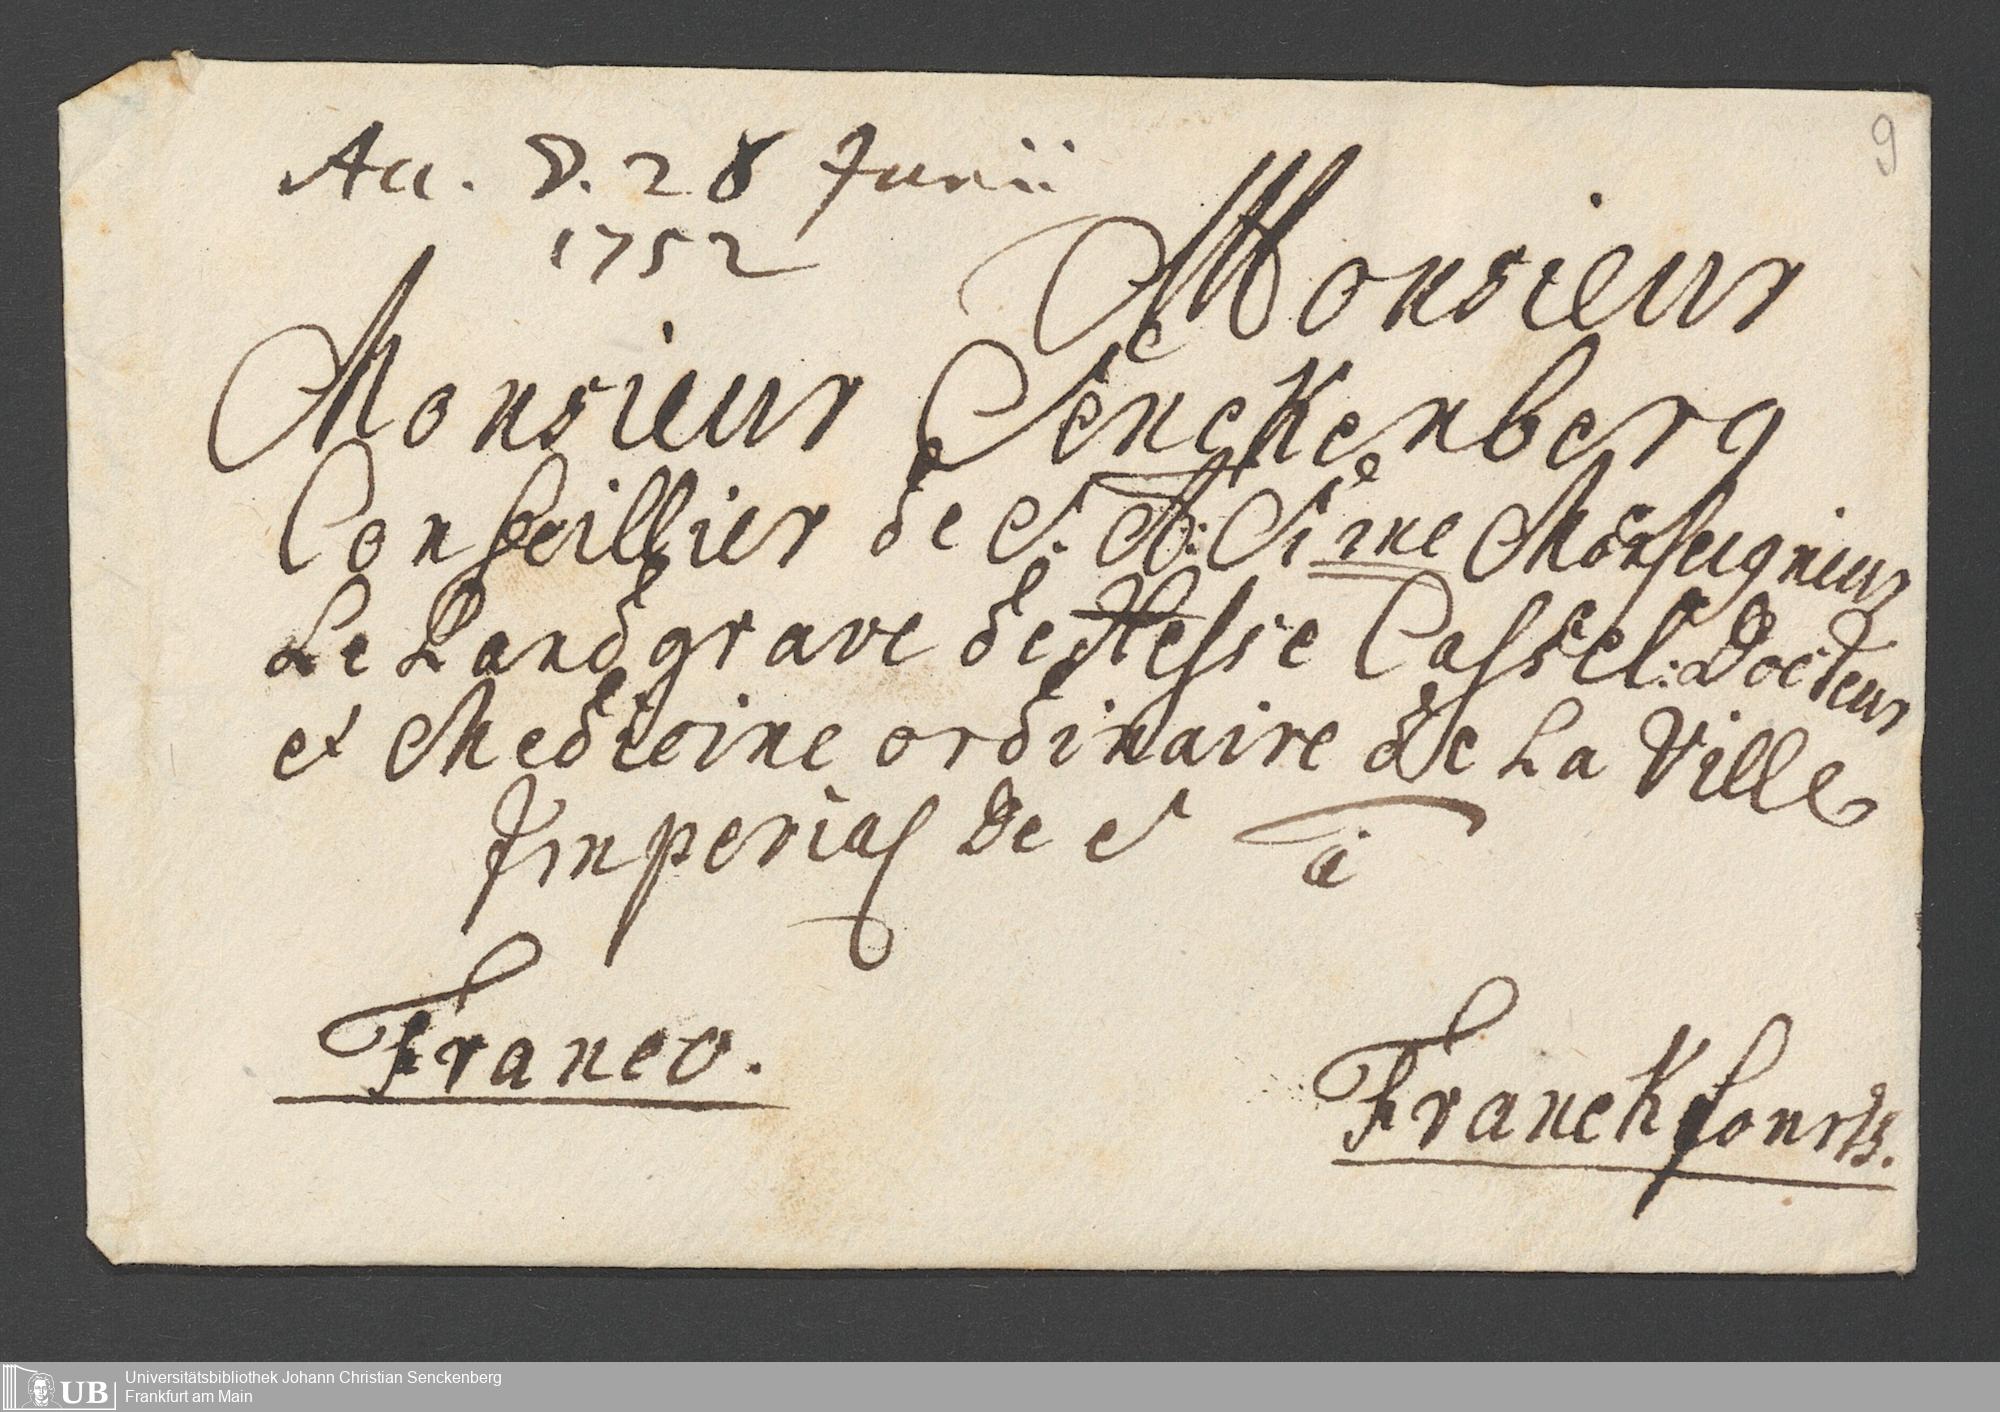 Acc. D. 28 Junii
1752
9
Monsieur
Monsieur Senckenberg
Conseillier de S. A: S: ime Monseignieur
Le Landgrave de Hesse Cassel. Docteur
et Medicine ordinaire de La Ville
Imperial De S
à
Franco.
Franckfourth.
UB
Universitätsbibliothek Johann Christian Senckenberg
Frankfurt am Main